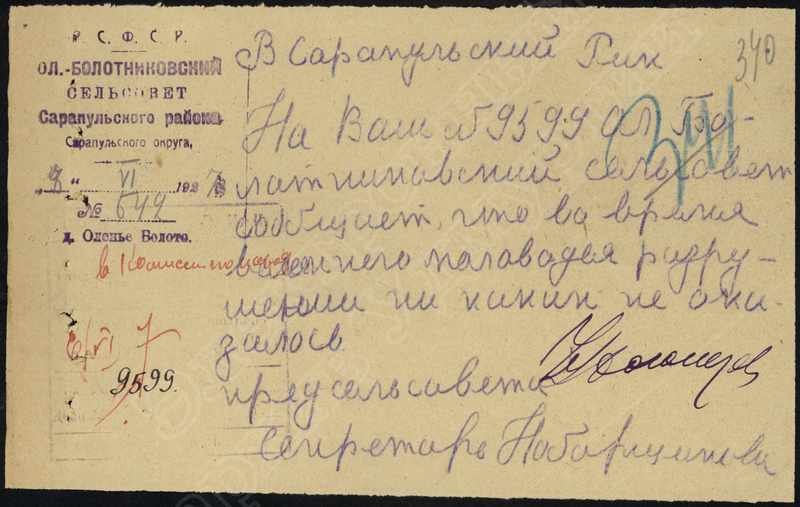 Р. С. Ф. С. Р.
ОЛ.-БОЛОТНИКОВСКИЙ
СЕЛЬСОВЕТ
Сарапульского района
Сарапульского округа,
VI 192
№ 649
д. Оленье Болото.
340
В Сарапульский Рик
На Ваш № 9599 Ол Бо-
латниковский сельсовет
сообщает, что во время
весеннего половадья разру-
шении ни каких не ока-
залось
предсельсовета
Секретарь Наборщикова
в Комиссию
6/VI 7
9599.